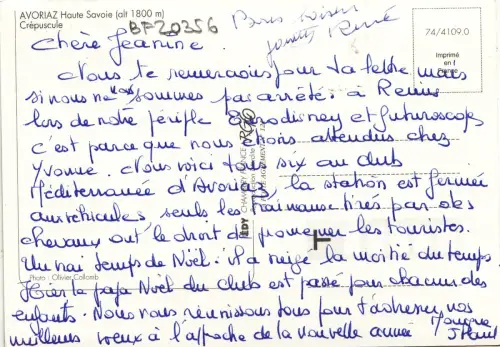 AVORIAZ Haute Savoie (alt 1800 m)
Crépuscule
BF20356
Bons baisers
René
74/4109.0
Imprimé
en f
Chère Jeannine.
Nous te remercions pour ta lettre mais
si nous ne nous sommes pas arrêtés à Reims
lors de notre périple Eurodisney et futuroscope
c'est parce que nous étions attendus chez
Yvonne. Nous voici tous six au club
Méditerrannée d'Avoriaz, la station est fermée
aux véhicules seuls les traineaux tirés par des
chevaux ont le droit de promener les touristes.
Un vrai temps de Noël. il a neigé la moitié du temps.
Photo : Olivier Collomb
Hier le papa Noël du club est passé pour chacun des
enfants. Nous nous réunissons tous pour t'adresser nos
meilleurs voeux à l'approche de la nouvelle année
EDY